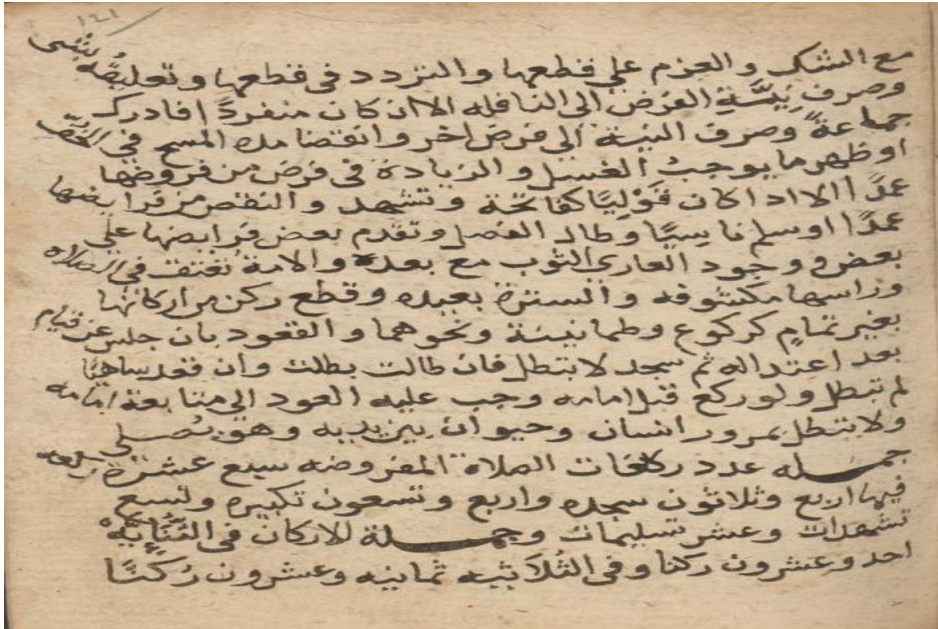 ١٤١
مع الشك والعزم على قطعها والتردد في قطعها وتعليقه بشى
وصرف نِيَّةِ الفرض الى النافله الا ان كان منفردًا فادرك
جماعةً وصرف النية الى فرض اخر وانقضا مده المسح في الخف
او ظهر ما يوجب الغسل والزيادة في فرض من فروضها
عمدًا الا اذا كان قَوْلِيًّا كفاتحة وتشهد والنقص من فرايضها
عمدًا او سلم ناسِيًا وطال الفصل وتقدم بعض فرايضها على
بعض ووجود العاري الثوب مع بعده والامة تعتق في الصلاه
وراسها مكشوفه والسترة بعيده وقطع ركن من اركانها
بغير تمامٍ كركوع وطمانينة ونحوهما والقعود بان جلس عن قيام
بعد اعتداله ثم سجد لا تبطل فان طالت بطلت وان قعد ساهيًا
لم تبطل ولو ركع قبل امامه وجب عليه العود الى متابعة امامه
ولا تبطل بمرور انسان وحيوان بين يديه وهو يُصلى
جمله عدد ركعات الصلاة المفروضه سبع عشرة ركعه
فيها اربع وثلاثون سجده واربع وتسعون تكبيره وتسع
تشهدات وعشر تسليمات وجملة الاركان في الثُنَائِيَّة
احد وعشرون ركنا وفي الثُلاَثيه ثمانيه وعشرون رُكنًا